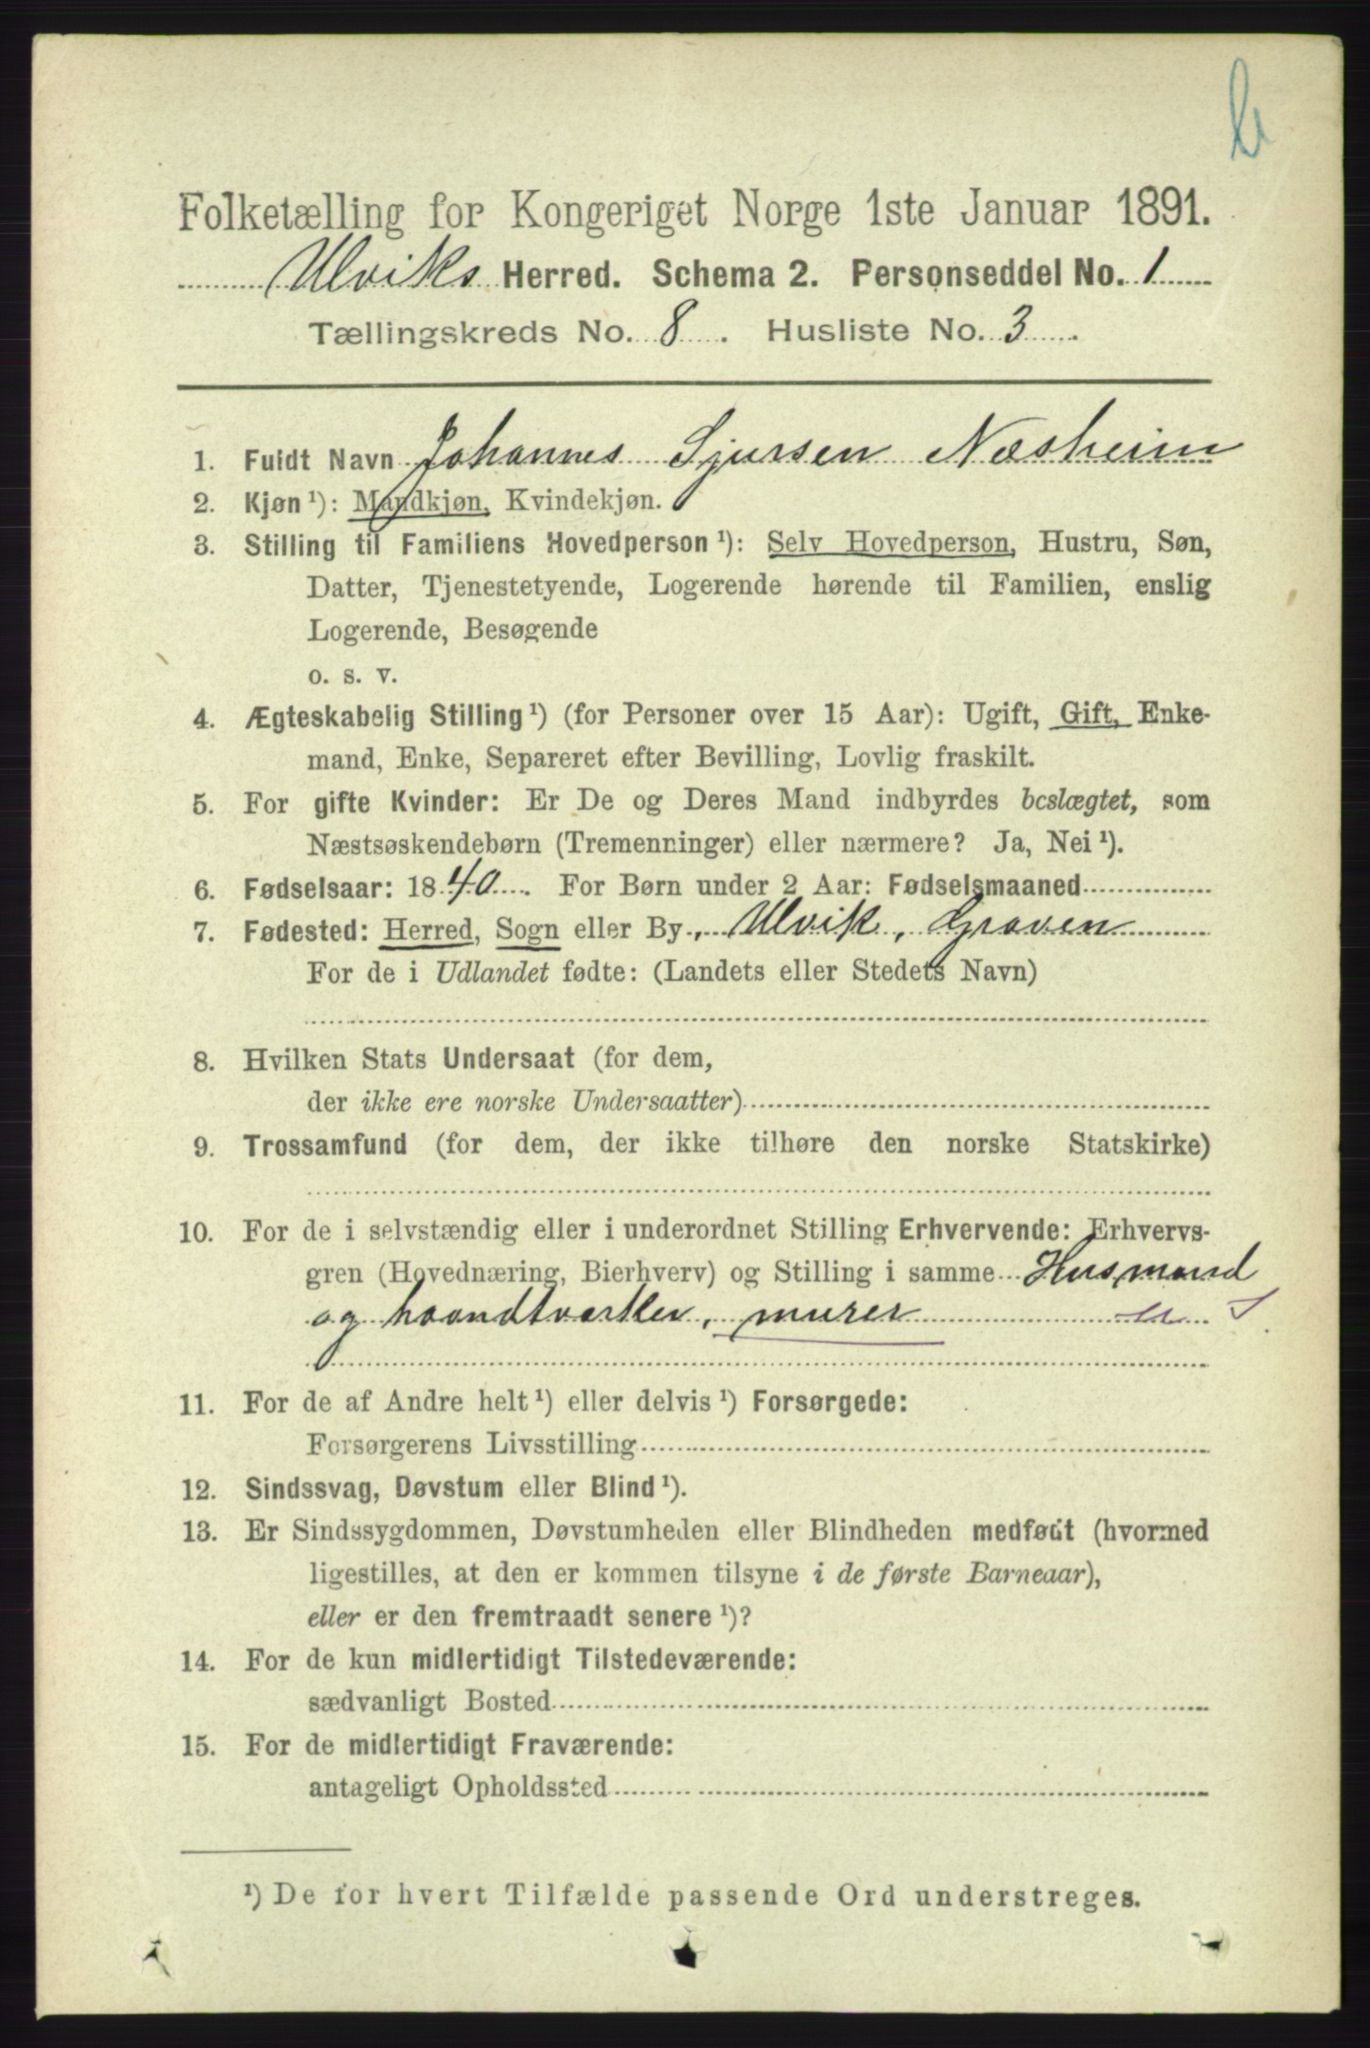 Folketælling for Kongeriget Norge 1ste Januar 1891.
Ulviks Herred. Schema 2. Personseddel No. 1
Tællingskreds No. 8. Husliste No. 3.
1. Fuldt Navn Johannes Sjursen Næsheim
2. Kjøn¹): Mandkjøn, Kvindekjøn.
3. Stilling til Familiens Hovedperson¹): Selv Hovedperson, Hustru, Søn,
Datter, Tjenestetyende, Logerende hørende til Familien, enslig
Logerende, Besøgende
o. s. v.
4. Ægteskabelig Stilling¹) (for Personer over 15 Aar): Ugift, Gift, Enke-
mand, Enke, Separeret efter Bevilling, Lovlig fraskilt.
5. For gifte Kvinder: Er De og Deres Mand indbyrdes beslægtet, som
Næstsøskendebørn (Tremenninger) eller nærmere? Ja, Nei¹).
6. Fødselsaar: 1840. For Børn under 2 Aar: Fødselsmaaned
7. Fødested: Herred, Sogn eller By, Ulvik, Graven
For de i Udlandet fødte: (Landets eller Stedets Navn)
8. Hvilken Stats Undersaat (for dem,
der ikke ere norske Undersaatter)
9. Trossamfund (for dem, der ikke tilhøre den norske Statskirke)
10. For de i selvstændig eller i underordnet Stilling Erhvervende: Erhvervs-
gren (Hovednæring, Bierhverv) og Stilling i samme Husmand
og haandtværker, murer
11. For de af Andre helt¹) eller delvis¹) Forsørgede:
Forsørgerens Livsstilling
12. Sindssvag, Døvstum eller Blind¹).
13. Er Sindssygdommen, Døvstumheden eller Blindheden medfødt (hvormed
ligestilles, at den er kommen tilsyne i de første Barneaar),
eller er den fremtraadt senere¹)?
14. For de kun midlertidigt Tilstedeværende:
sædvanligt Bosted
15. For de midlertidigt Fraværende:
antageligt Opholdssted
¹) De for hvert Tilfælde passende Ord understreges.